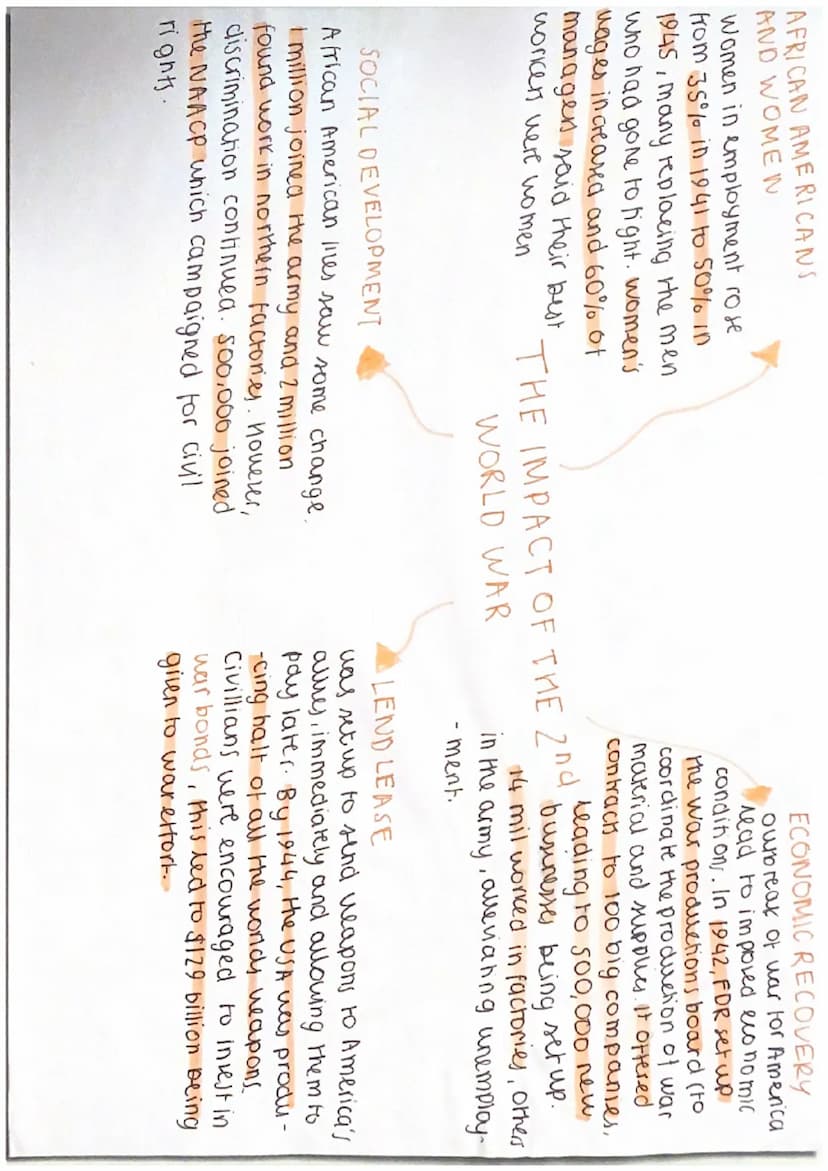 AFRICAN AMERICANS
AND WOMEN
Women in employment rose
from 35% in 1941 to 50% in
1945, many replacing the men
who had gone to fight. women's
wages increased and 60% of
managers said their best
workers were women
ECONOMIC RECOVERY
outbreak of war for America
lead to imposed economic
conditions. In 1942, FDR set up
the war productions board (to
coordinate the production of war
material and supplies. It offered
contracts to 100 big companies,
leading to 500,000 new
businesses being set up.
14 mil worked in factories, others
in the army, alleviating unemploy-
-ment.
THE IMPACT OF THE 2nd
WORLD WAR
SOCIAL DEVELOPMENT
African American lives saw some change.
1 million joined the army and 2 million
found work in northern factories. However,
discrimination continued. 500,000 joined
the NAACP which campaigned for civil
rights.
LEND LEASE
was set up to send weapons to America's
allies, immediately and allowing them to
pay later. By 1944, the USA was produ-
-cing half of all the worlds weapons.
Civillians were encouraged to invest in
war bonds, this led to $129 billion being
given to war effort.